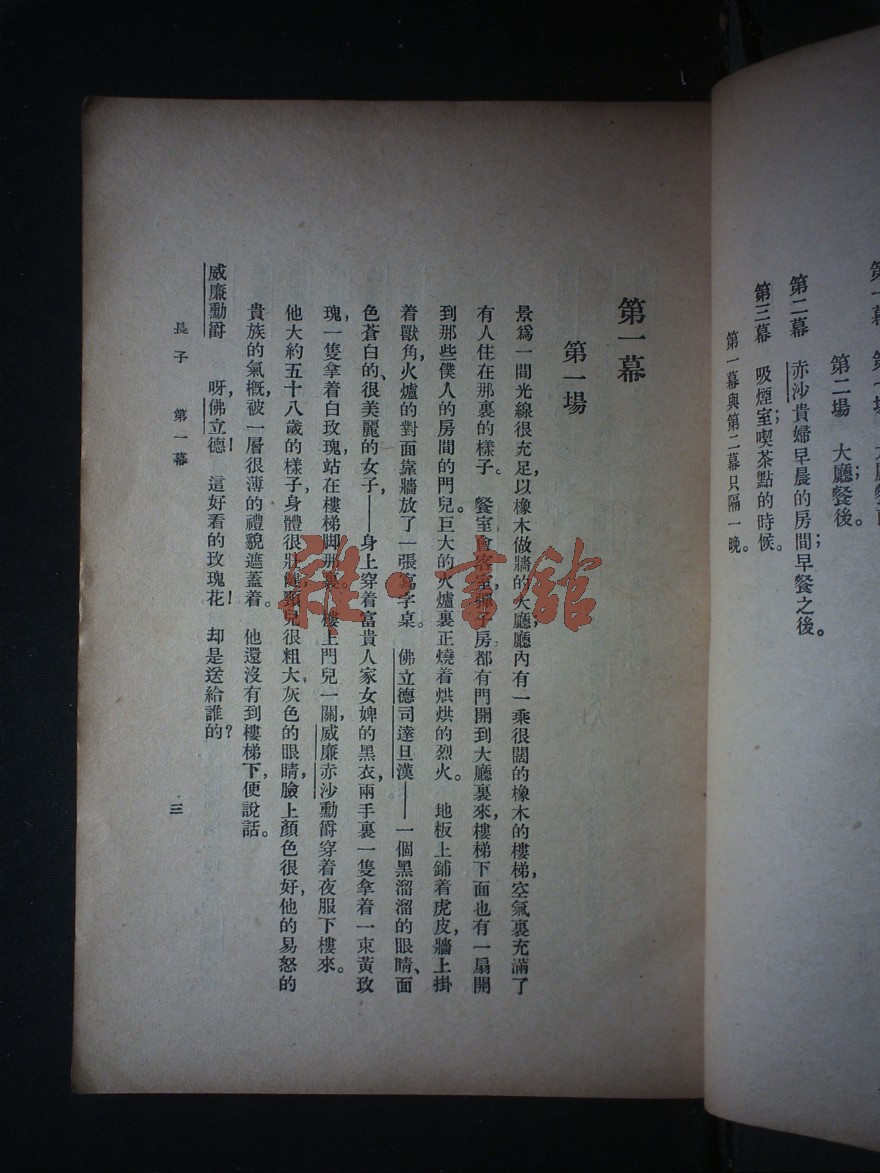 第一幕 第一場 大廳餐前
第二場 大廳餐後。
第二幕 赤沙貴婦早晨的房間早餐之後。
第三幕 吸煙室;喫茶點的時候。
第一幕與第二幕只隔一晚。
第一幕
第一場
景爲一間光線很充足,以橡木做牆的大廳;廳內有一乘很闊的橡木的樓梯,空氣裏充滿了
有人住在那裏的樣子。 餐室會客室,彈子房都有門開到大廳裏來,樓梯下面也有一扇開
到那些僕人的房間的門兒。巨大的火爐裏正燒着烘烘的烈火。 地板上鋪着虎皮,牆上掛
着獸角,火爐的對面靠牆放了一張寫字桌。 佛立德司達旦漢——一個黑溜溜的眼睛、面
色蒼白的、很美麗的女子——身上穿着富貴人家女婢的黑衣,兩手裏一隻拿着一束黃玫
瑰,一隻拿着白玫瑰,站在樓梯脚那裏。樓上門兒一關,威廉赤沙勳爵穿着夜服下樓來。
他大約五十八歲的樣子,身體很壯健,頸兒很粗大,灰色的眼睛,臉上顏色很好,他的易怒的
貴族的氣槪,被一層很薄的禮貌遮蓋着。 他還沒有到樓梯下,便說話。
威廉勳爵 呀,佛立德! 這好看的玫瑰花! 却是送給誰的?
長子 第一幕
三
雜·書館